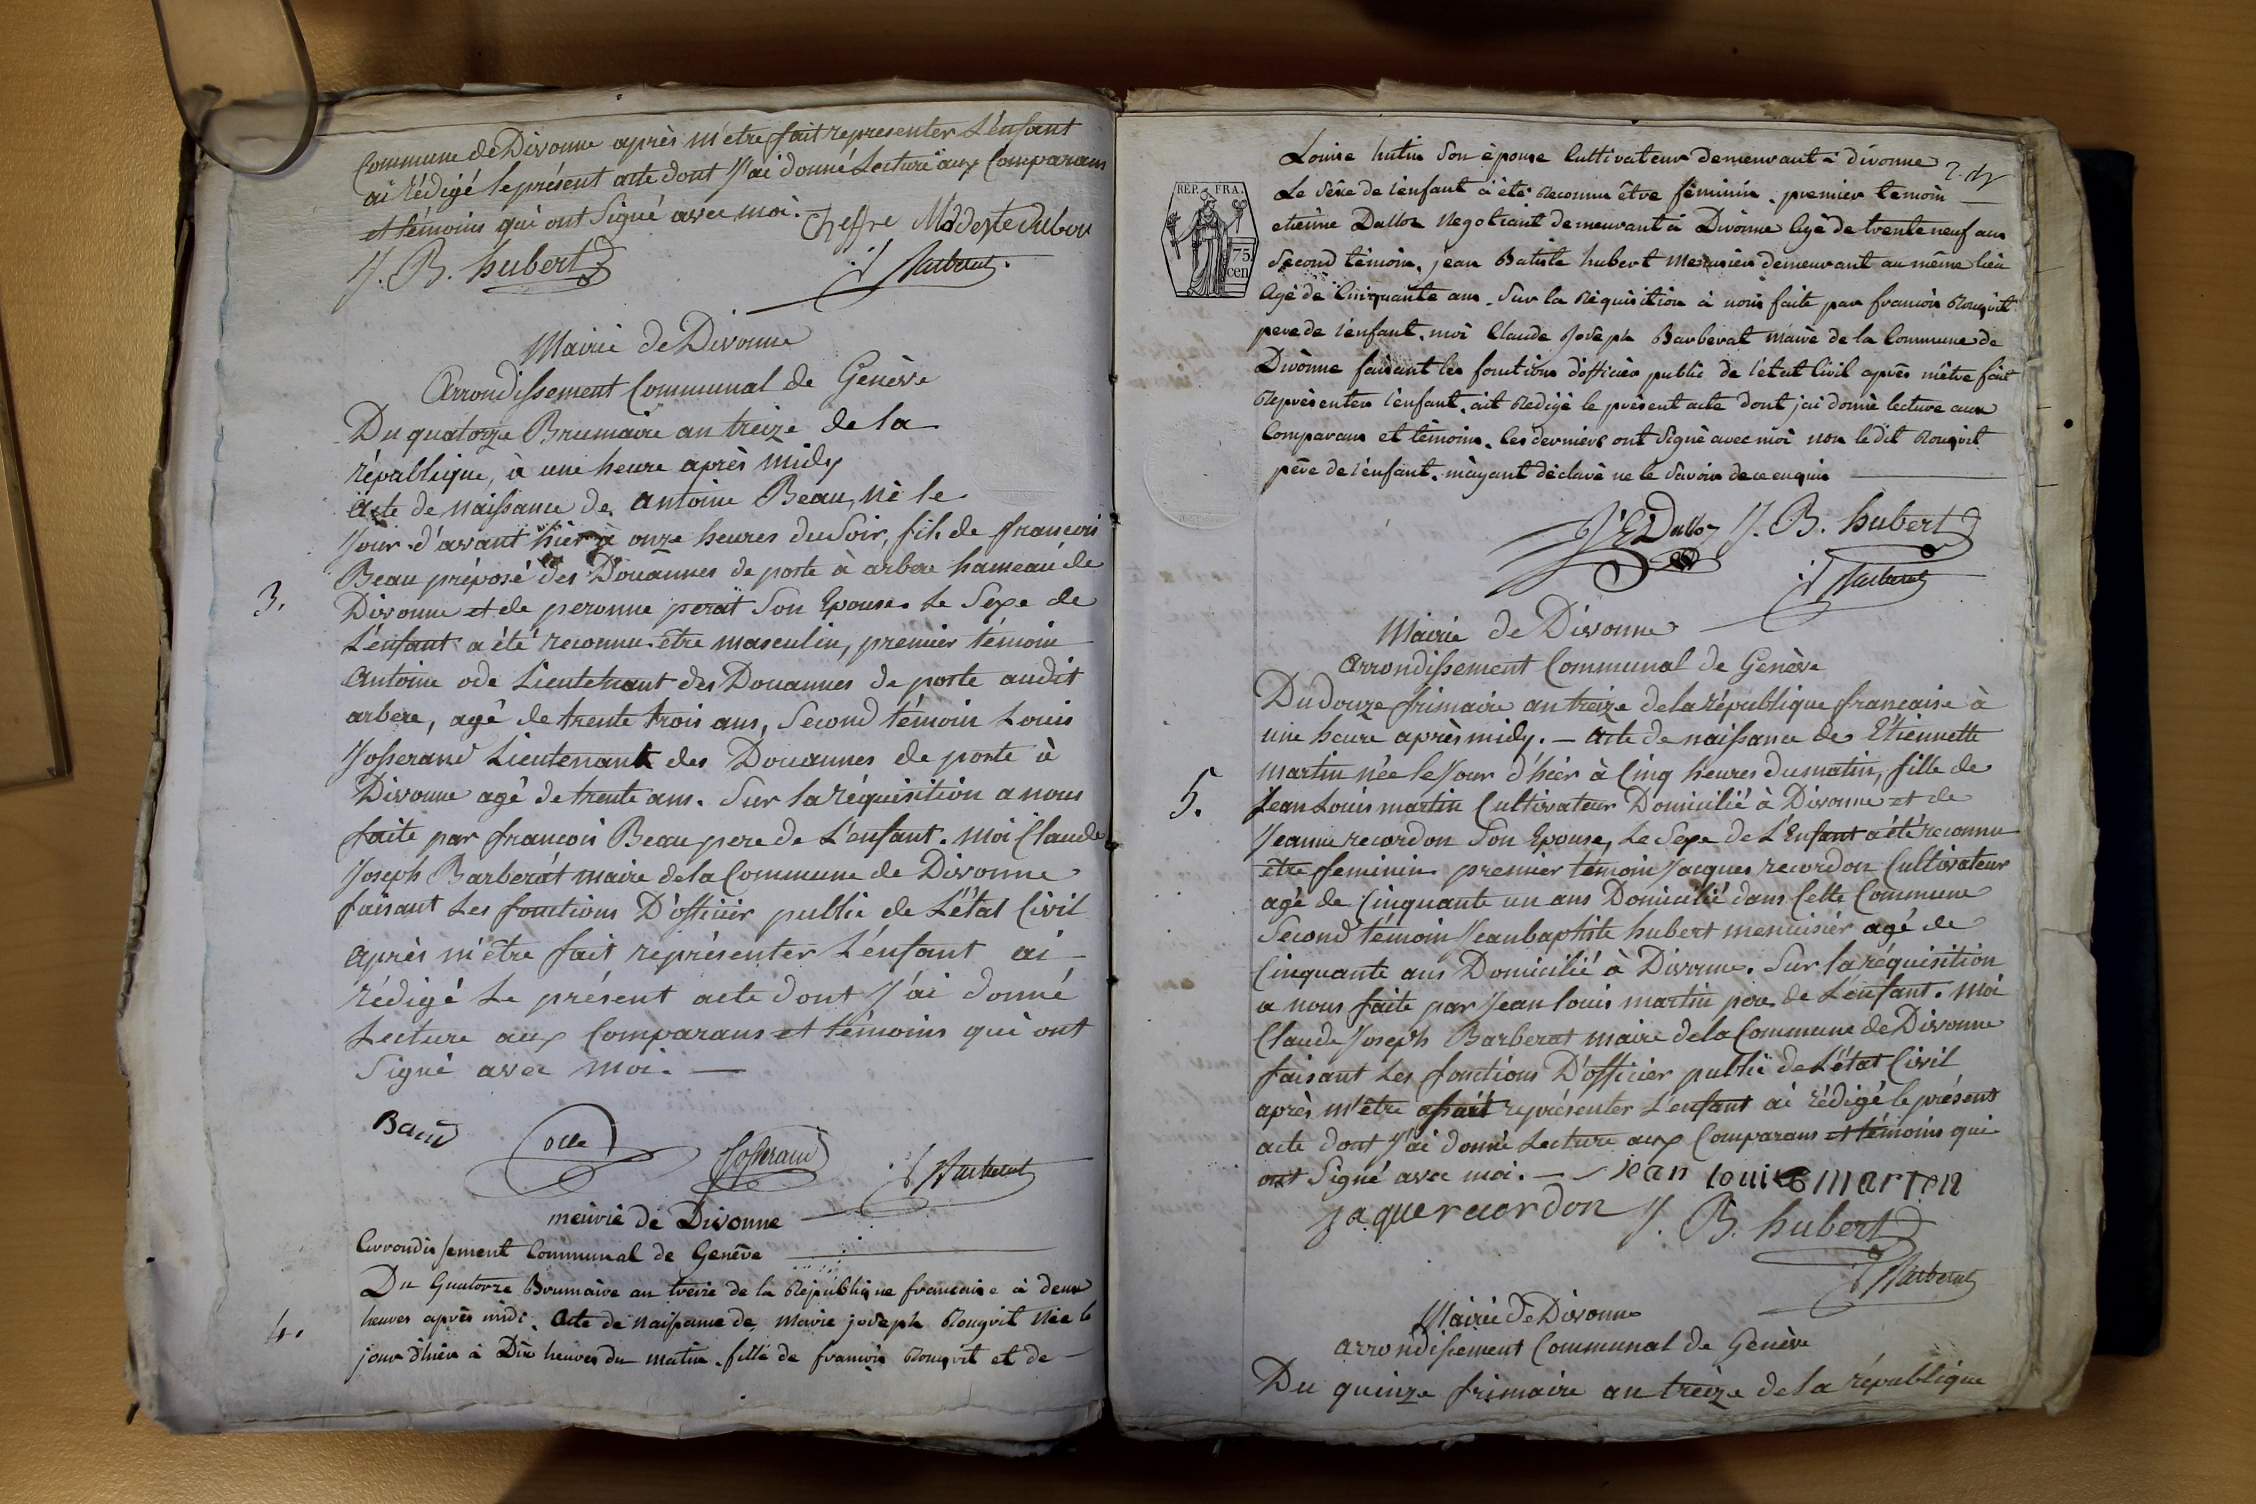 Commune de Divonne après m'etre fait representer L'enfant
ai rédigé le présent acte dont J'ai donné Lecture aux Comparans
et témoins qui ont Signé avec moi.
J. B. hubert
Barberat
Mairie de Divonne
Arrondissement Communal de Genève
Du quatorze Brumaire an treize de la
république, à une heure après midy
acte de naissance de antoine Beau, né le
Jour d'avant hier à onze heures du Soir, fils de francois
Beau préposé des Douannes de poste à arbere hameau de
3.
Divonne et de peronne perat Son Epouse. Le Sexe de
L'enfant a été reconnu être masculin, premier témoin
antoine ode Lieutenant des Douannes de poste audit
arbere, agé de trente trois ans, Second témoin Louis
Josserand Lieutenant des Douannes de poste à
Divonne agé de trente ans. Sur la réquisition a nous
faite par francois Beau pere de L'enfant. Moi Claude
Joseph Barberat maire de la Commune de Divonne
faisant Les fonctions D'officier public de L'état Civil
après m'être fait représenter L'enfant ai
rédigé Le présent acte dont J'ai donné
Lecture aux Comparans et témoins qui ont
Signé avec moi.
Baud ode Josserand Barberat
meirie de Divonne
Arrondissement Communal de Genêve
Du Quatorze Brumaire an treize de la République francaise à deux
4.
heures après midi. Acte de naissance de, Marie joseph Rouqvit Née le
jour d'hièr à Dix heures du matin. fille de francois Rouqvit et de
Louise hutin Son épouse Cultivateur demeurant à divonne
Le Sexe de l'enfant à été Reconnu être féminin. premier temoin
REP. FRA.
75 cen
etienne Dalloz Negotiant demeurant à Divonne Agé de trente neuf ans
Second témoin, jean Batiste hubert Menusier demeurant au même lieu
Agé de Cinquante ans. Sur la Réquisition à nous faite par francois Rouqvit
pere de l'enfant. moi Claude Joseph Barberat maire de la Commune de
Divonne faisant les fonctions d'officier public de l'état Civil après m'être fait
Représenter l'enfant. ait Redigé le présent acte dont j'ai donné lecture aux
Comparans et témoins. les derniers ont Signé avec moi non ledit Rouqvit
père de l'enfant. m'ayant déclaré ne le Savoir de ce enquis
Dalloz J. B. hubert
Barberat
Mairie de Divonne
arrondissement Communal de Genève
Du douze frimaire an treize de la république francaise à
une heure après midy. — acte de naissance de Etiennette
martin née le Jour d'hier à Cinq heures du matin, fille de
5.
Jean Louis martin Cultivateur Domicilié à Divonne et de
Jeanne recordon Son Epouse, Le Sexe de L'Enfant a été reconnu
être feminin premier temoin Jacques recordon Cultivateur
agé de Cinquante un ans Domicilié dans Cette Commune
Second témoin Jean baptiste hubert menuisier agé de
Cinquante ans Domicilié à Divonne. Sur la réquisition
a nous faite par Jean Louis martin pere de L'enfant. Moi
Claude Joseph Barberat maire de la Commune de Divonne
faisant Les fonctions D'officier public de L'état Civil
après m'être fait représenter L'enfant ai rédigé le présent
acte dont J'ai donné Lecture aux Comparans et témoins qui
ont Signé avec moi. — Jean louis marten
jaque recordon J. B. hubert
Barberat
Mairie de Divonne
arrondissement Communal de Genève
Du quinze frimaire an treize de la république